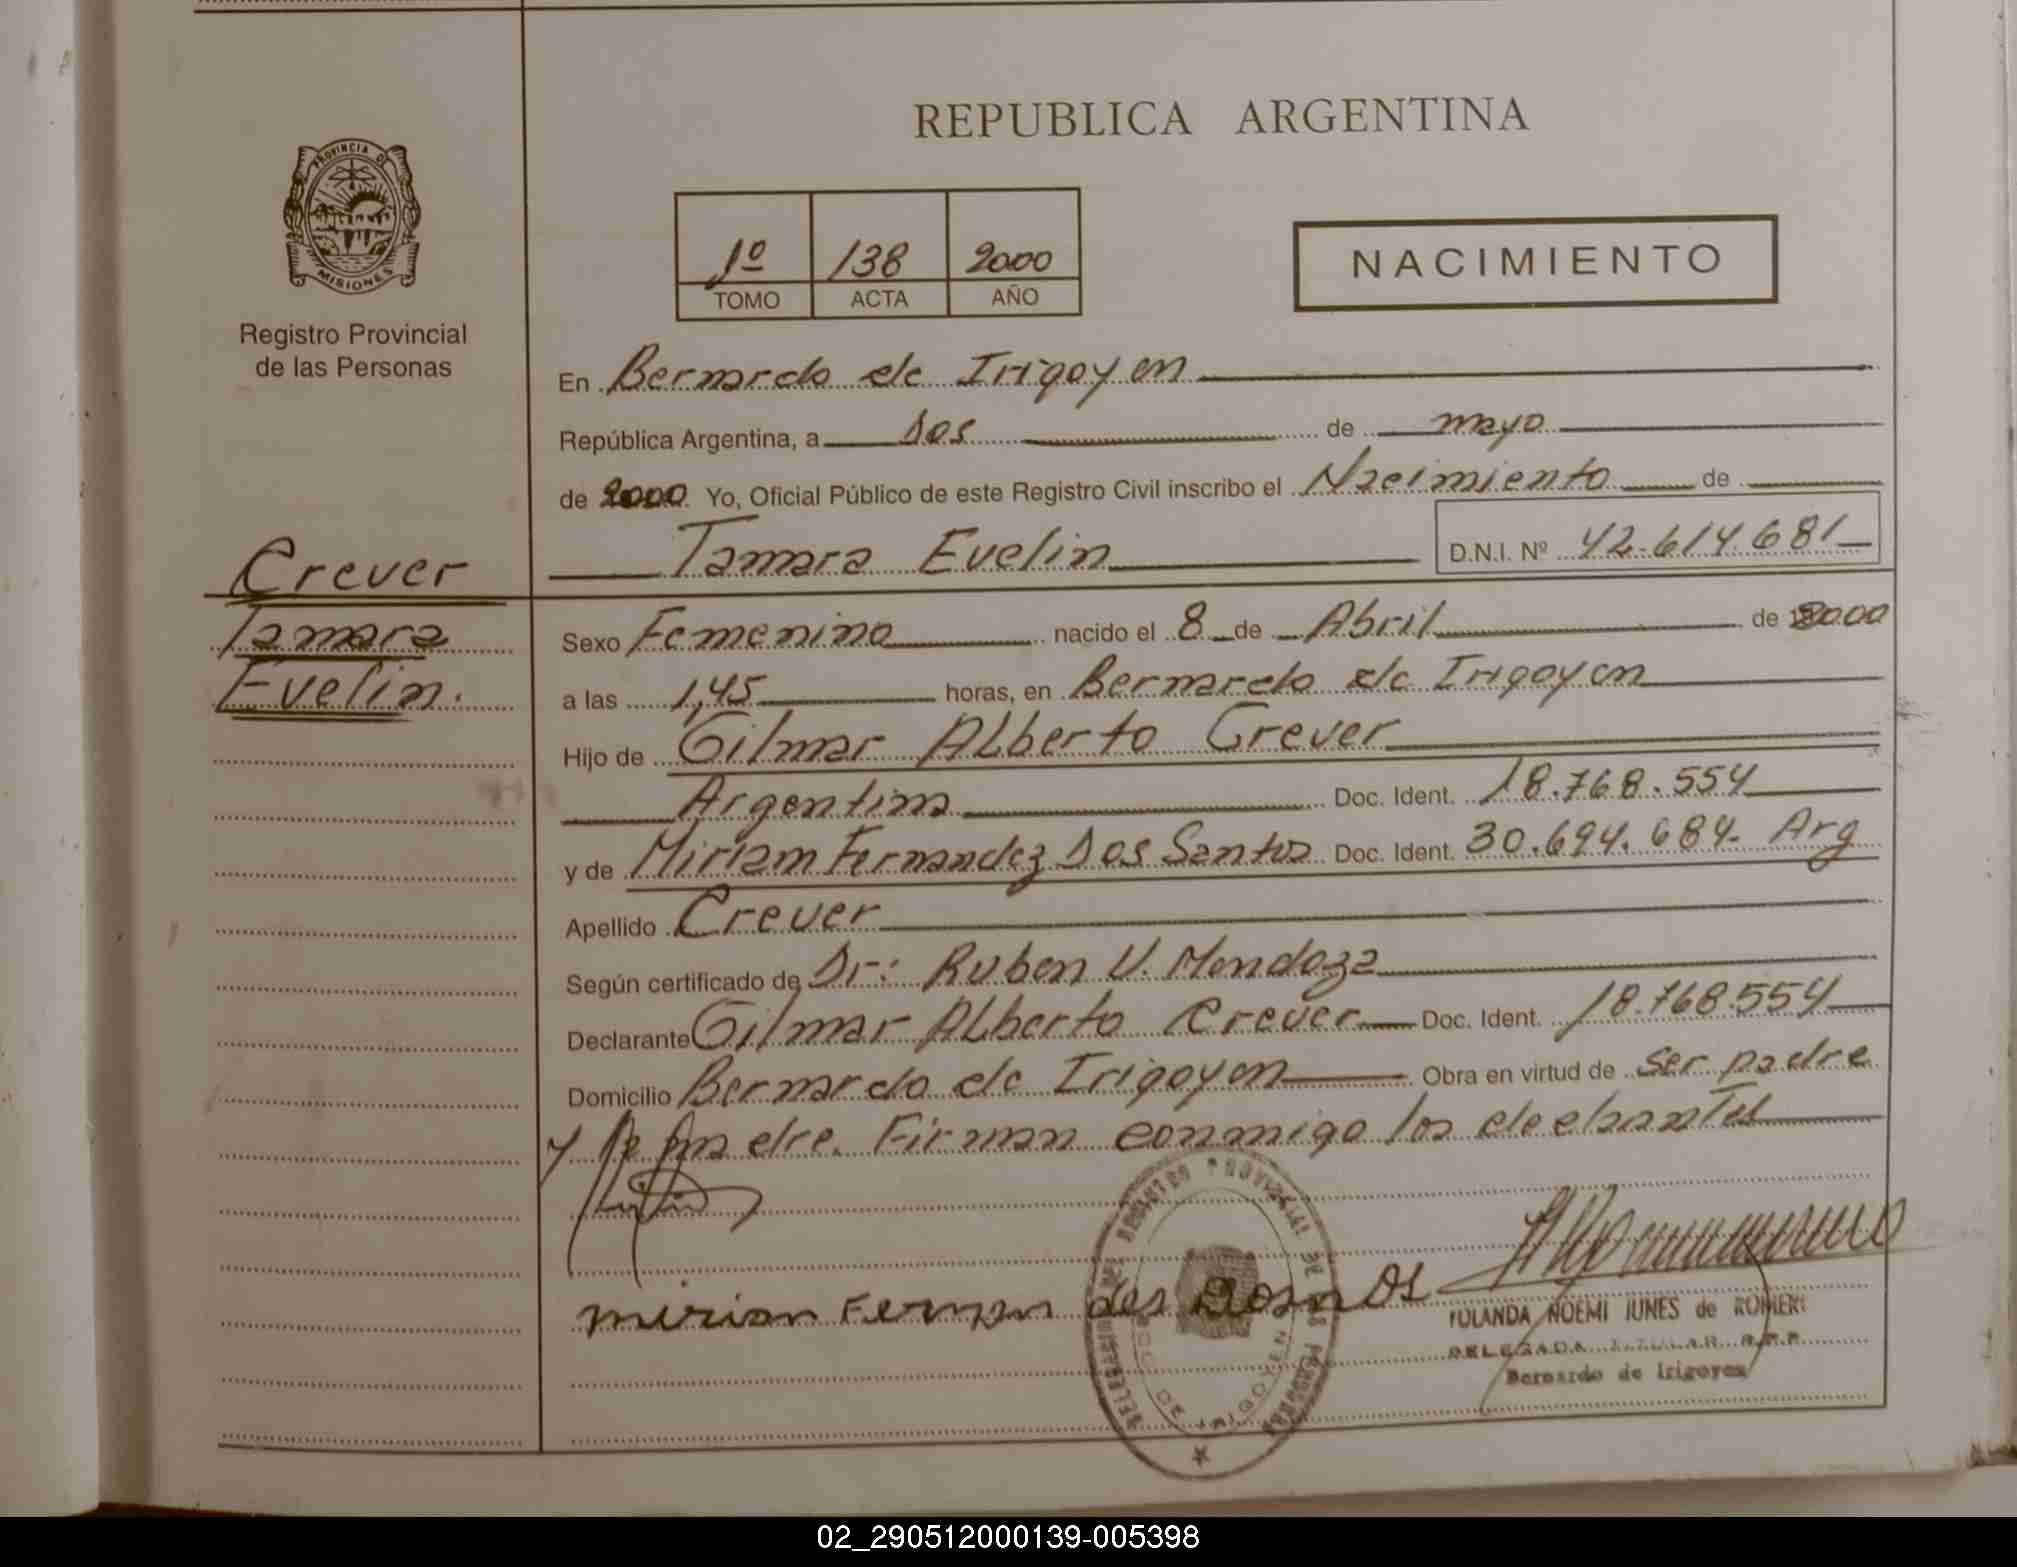 REPUBLICA ARGENTINA
PROVINCIA DE MISIONES
Registro Provincial
de las Personas
1º 138 2000
TOMO ACTA AÑO
NACIMIENTO
En Bernardo de Irigoyen
República Argentina, a dos de mayo
de 2000 Yo, Oficial Público de este Registro Civil inscribo el Nacimiento de
Tamara Evelin D.N.I. Nº 42.614.681
Crever
Tamara
Evelin.
Sexo Femenino nacido el 8 de Abril de 2000
a las 1,45 horas, en Bernardo de Irigoyen
Hijo de Gilmar Alberto Crever
Argentina Doc. Ident. 18.768.554
y de Miriam Fernandez Dos Santos Doc. Ident. 30.694.684. Arg
Apellido Crever
Según certificado de Dr: Ruben V. Mendoza
Declarante Gilmar Alberto Crever Doc. Ident. 18.768.554
Domicilio Bernardo de Irigoyen Obra en virtud de ser padre
y la madre. Firman conmigo los
mirian Fernan des
REGISTRO PROVINCIAL DE LAS PERSONAS
BDO. DE IRIGOYEN
YOLANDA NOEMI IUNES de ROMERO
DELEGADA TITULAR R.P.P.
Bernardo de Irigoyen
02_290512000139-005398